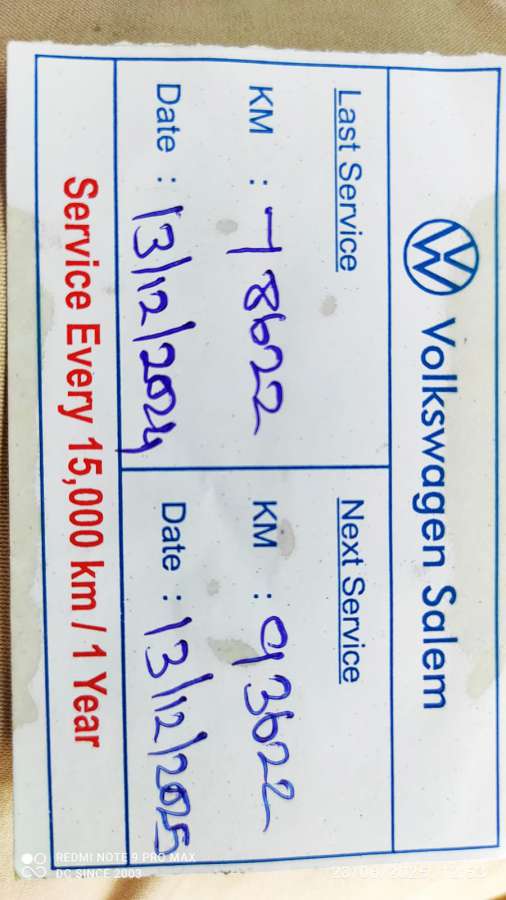 Volkswagen Salem
Last Service
KM : 78622
Date : 13/12/2024
Next Service
KM : 93622
Date : 13/12/2025
Service Every 15,000 km / 1 Year
REDMI NOTE 9 PRO MAX
DC SINCE 2003